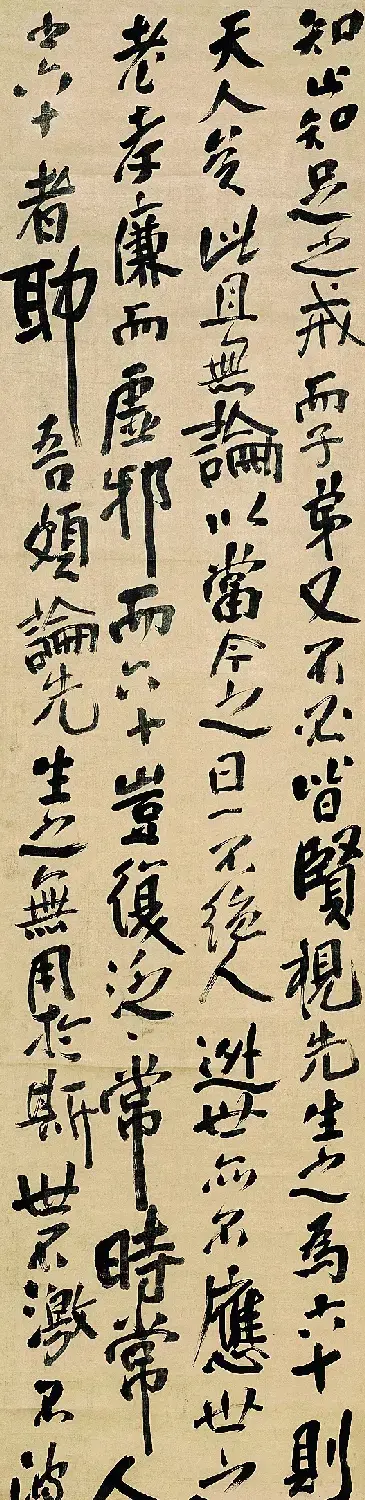 知止知足之戒而子弟又不必皆賢視先生之為六十則
天人矣此且無論以當今之日一不絕人逃世亦不應世之
老孝廉而虛邪而六十豈復泛〻常時常人
之六十者耶吾頗論先生之無用於斯世不激不